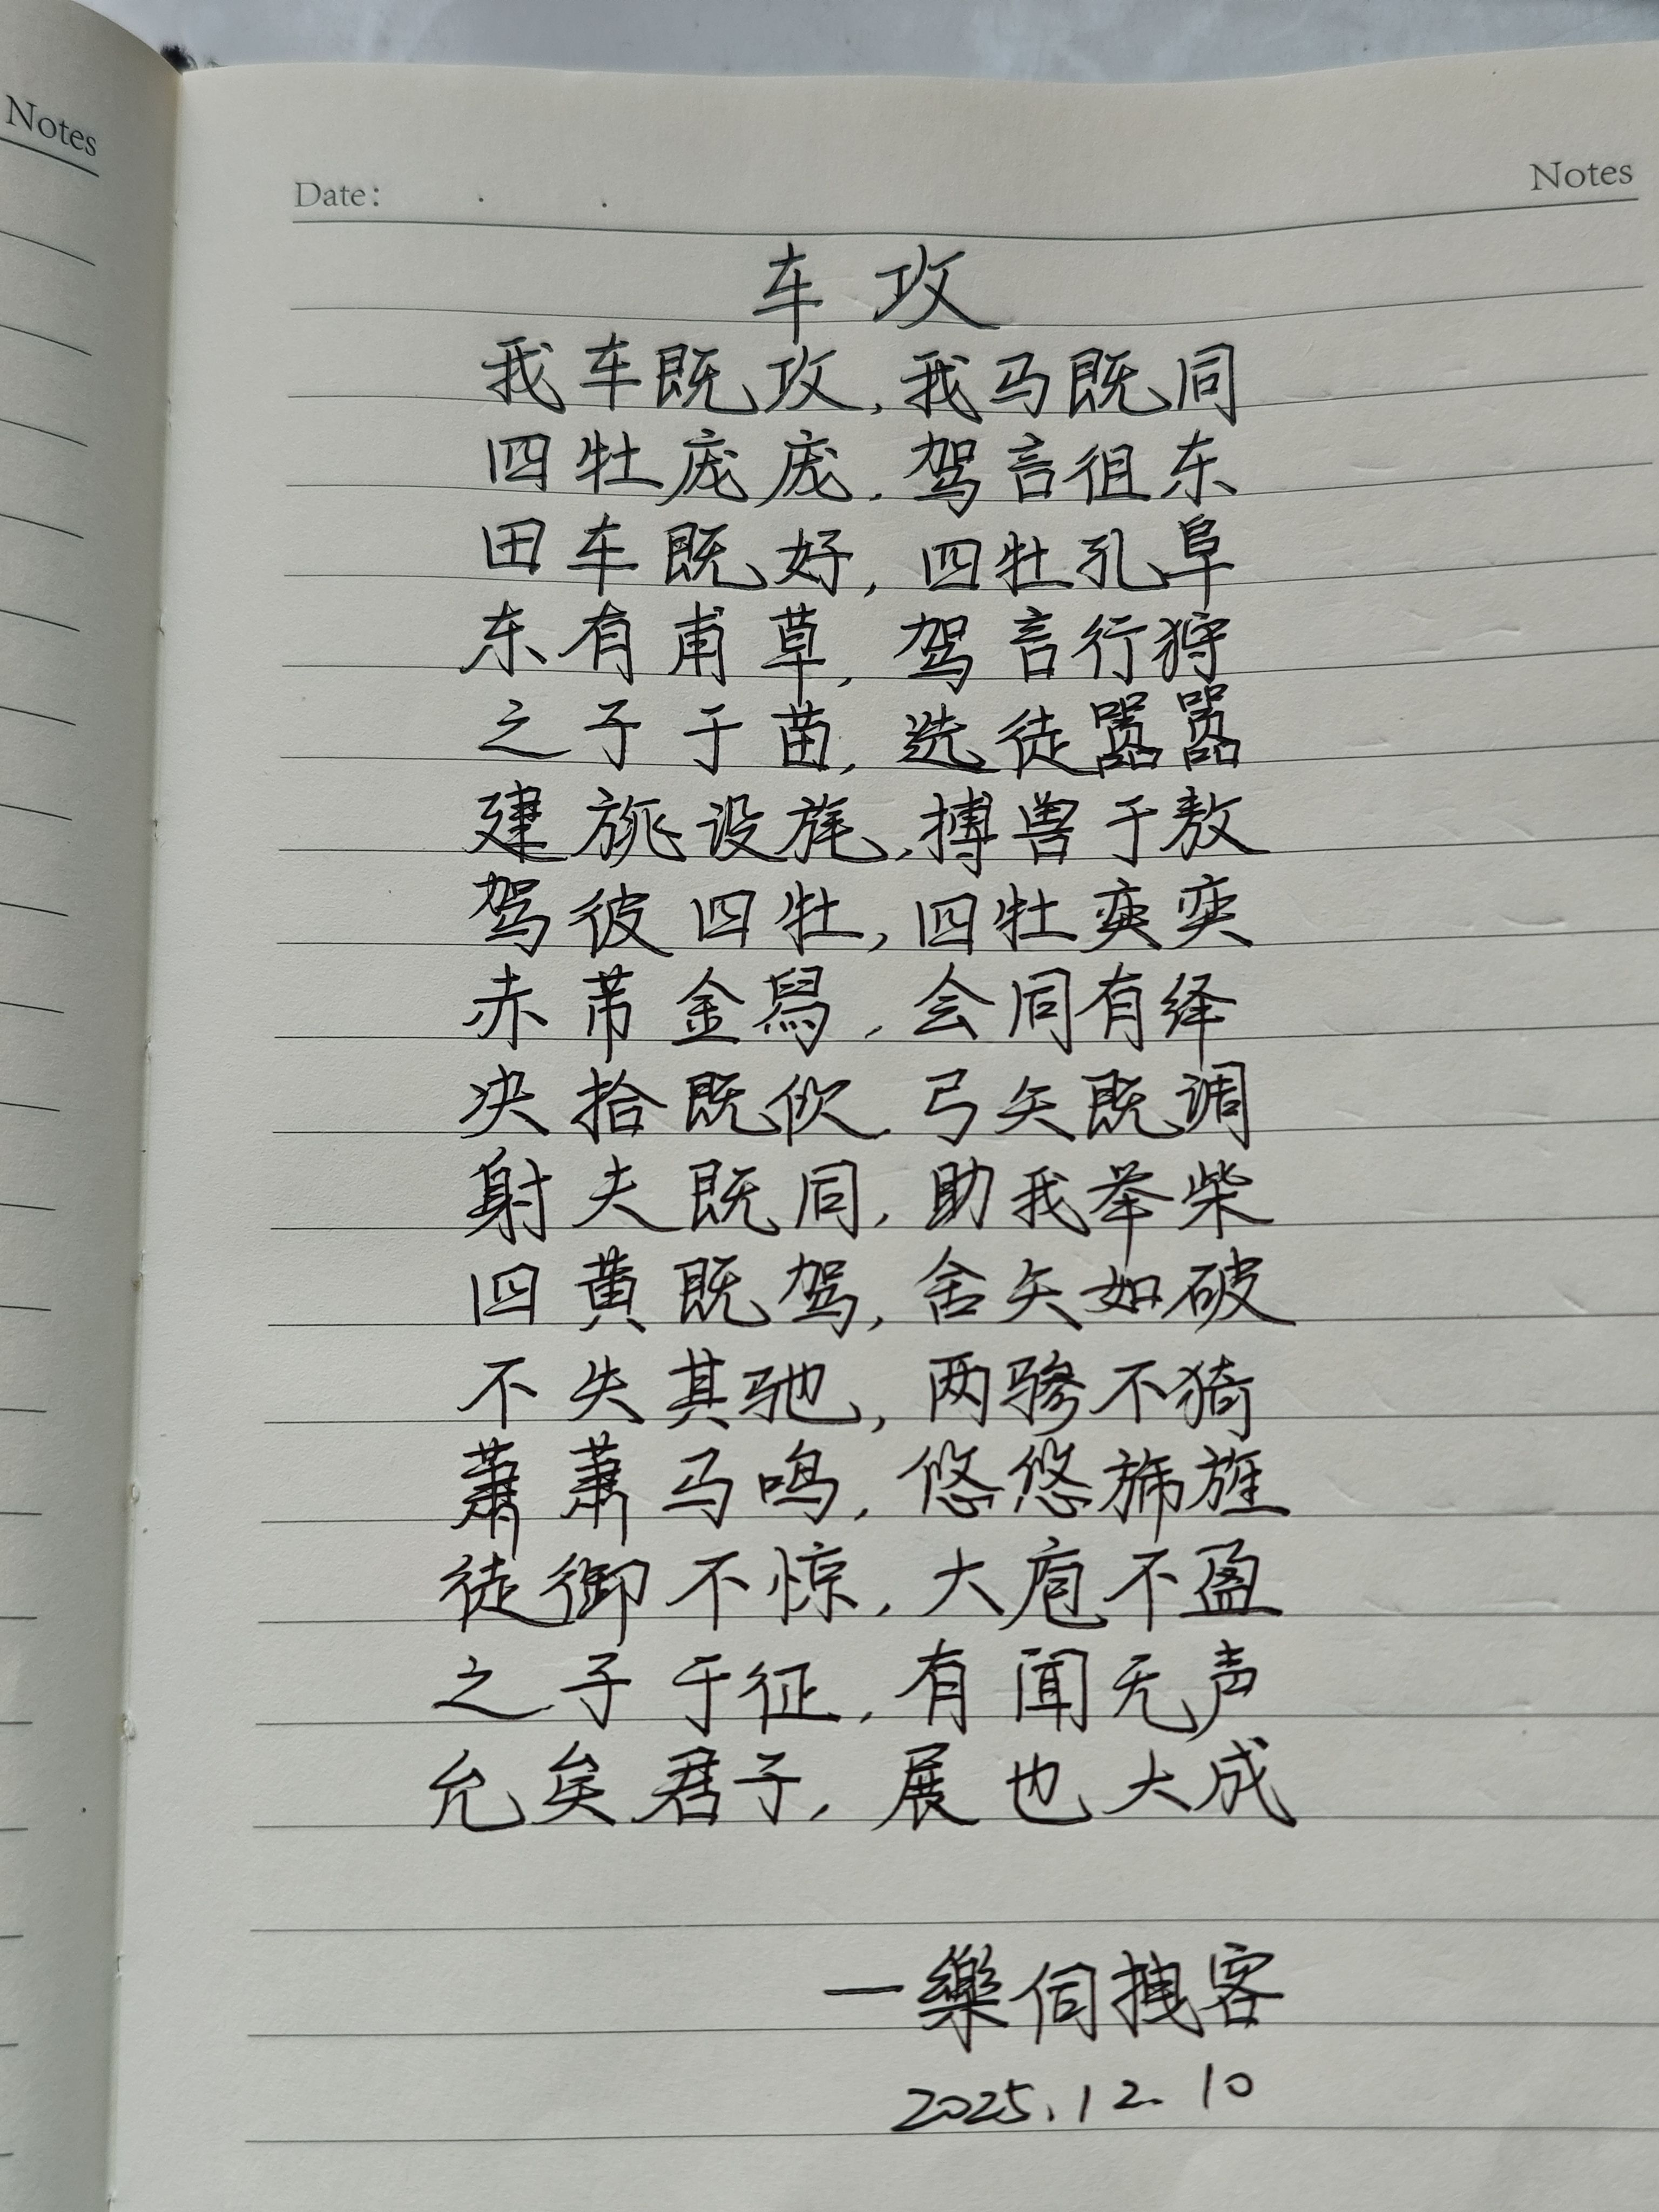 Notes
Date: . .
Notes
车攻
我车既攻,我马既同
四牡庞庞,驾言徂东
田车既好,四牡孔阜
东有甫草,驾言行狩
之子于苗,选徒嚣嚣
建旐设旄,搏兽于敖
驾彼四牡,四牡奕奕
赤芾金舄,会同有绎
决拾既佽,弓矢既调
射夫既同,助我举柴
四黄既驾,舍矢如破
不失其驰,两骖不猗
萧萧马鸣,悠悠旆旌
徒御不惊,大庖不盈
之子于征,有闻无声
允矣君子,展也大成
一樂伺拽客
2025.12.10